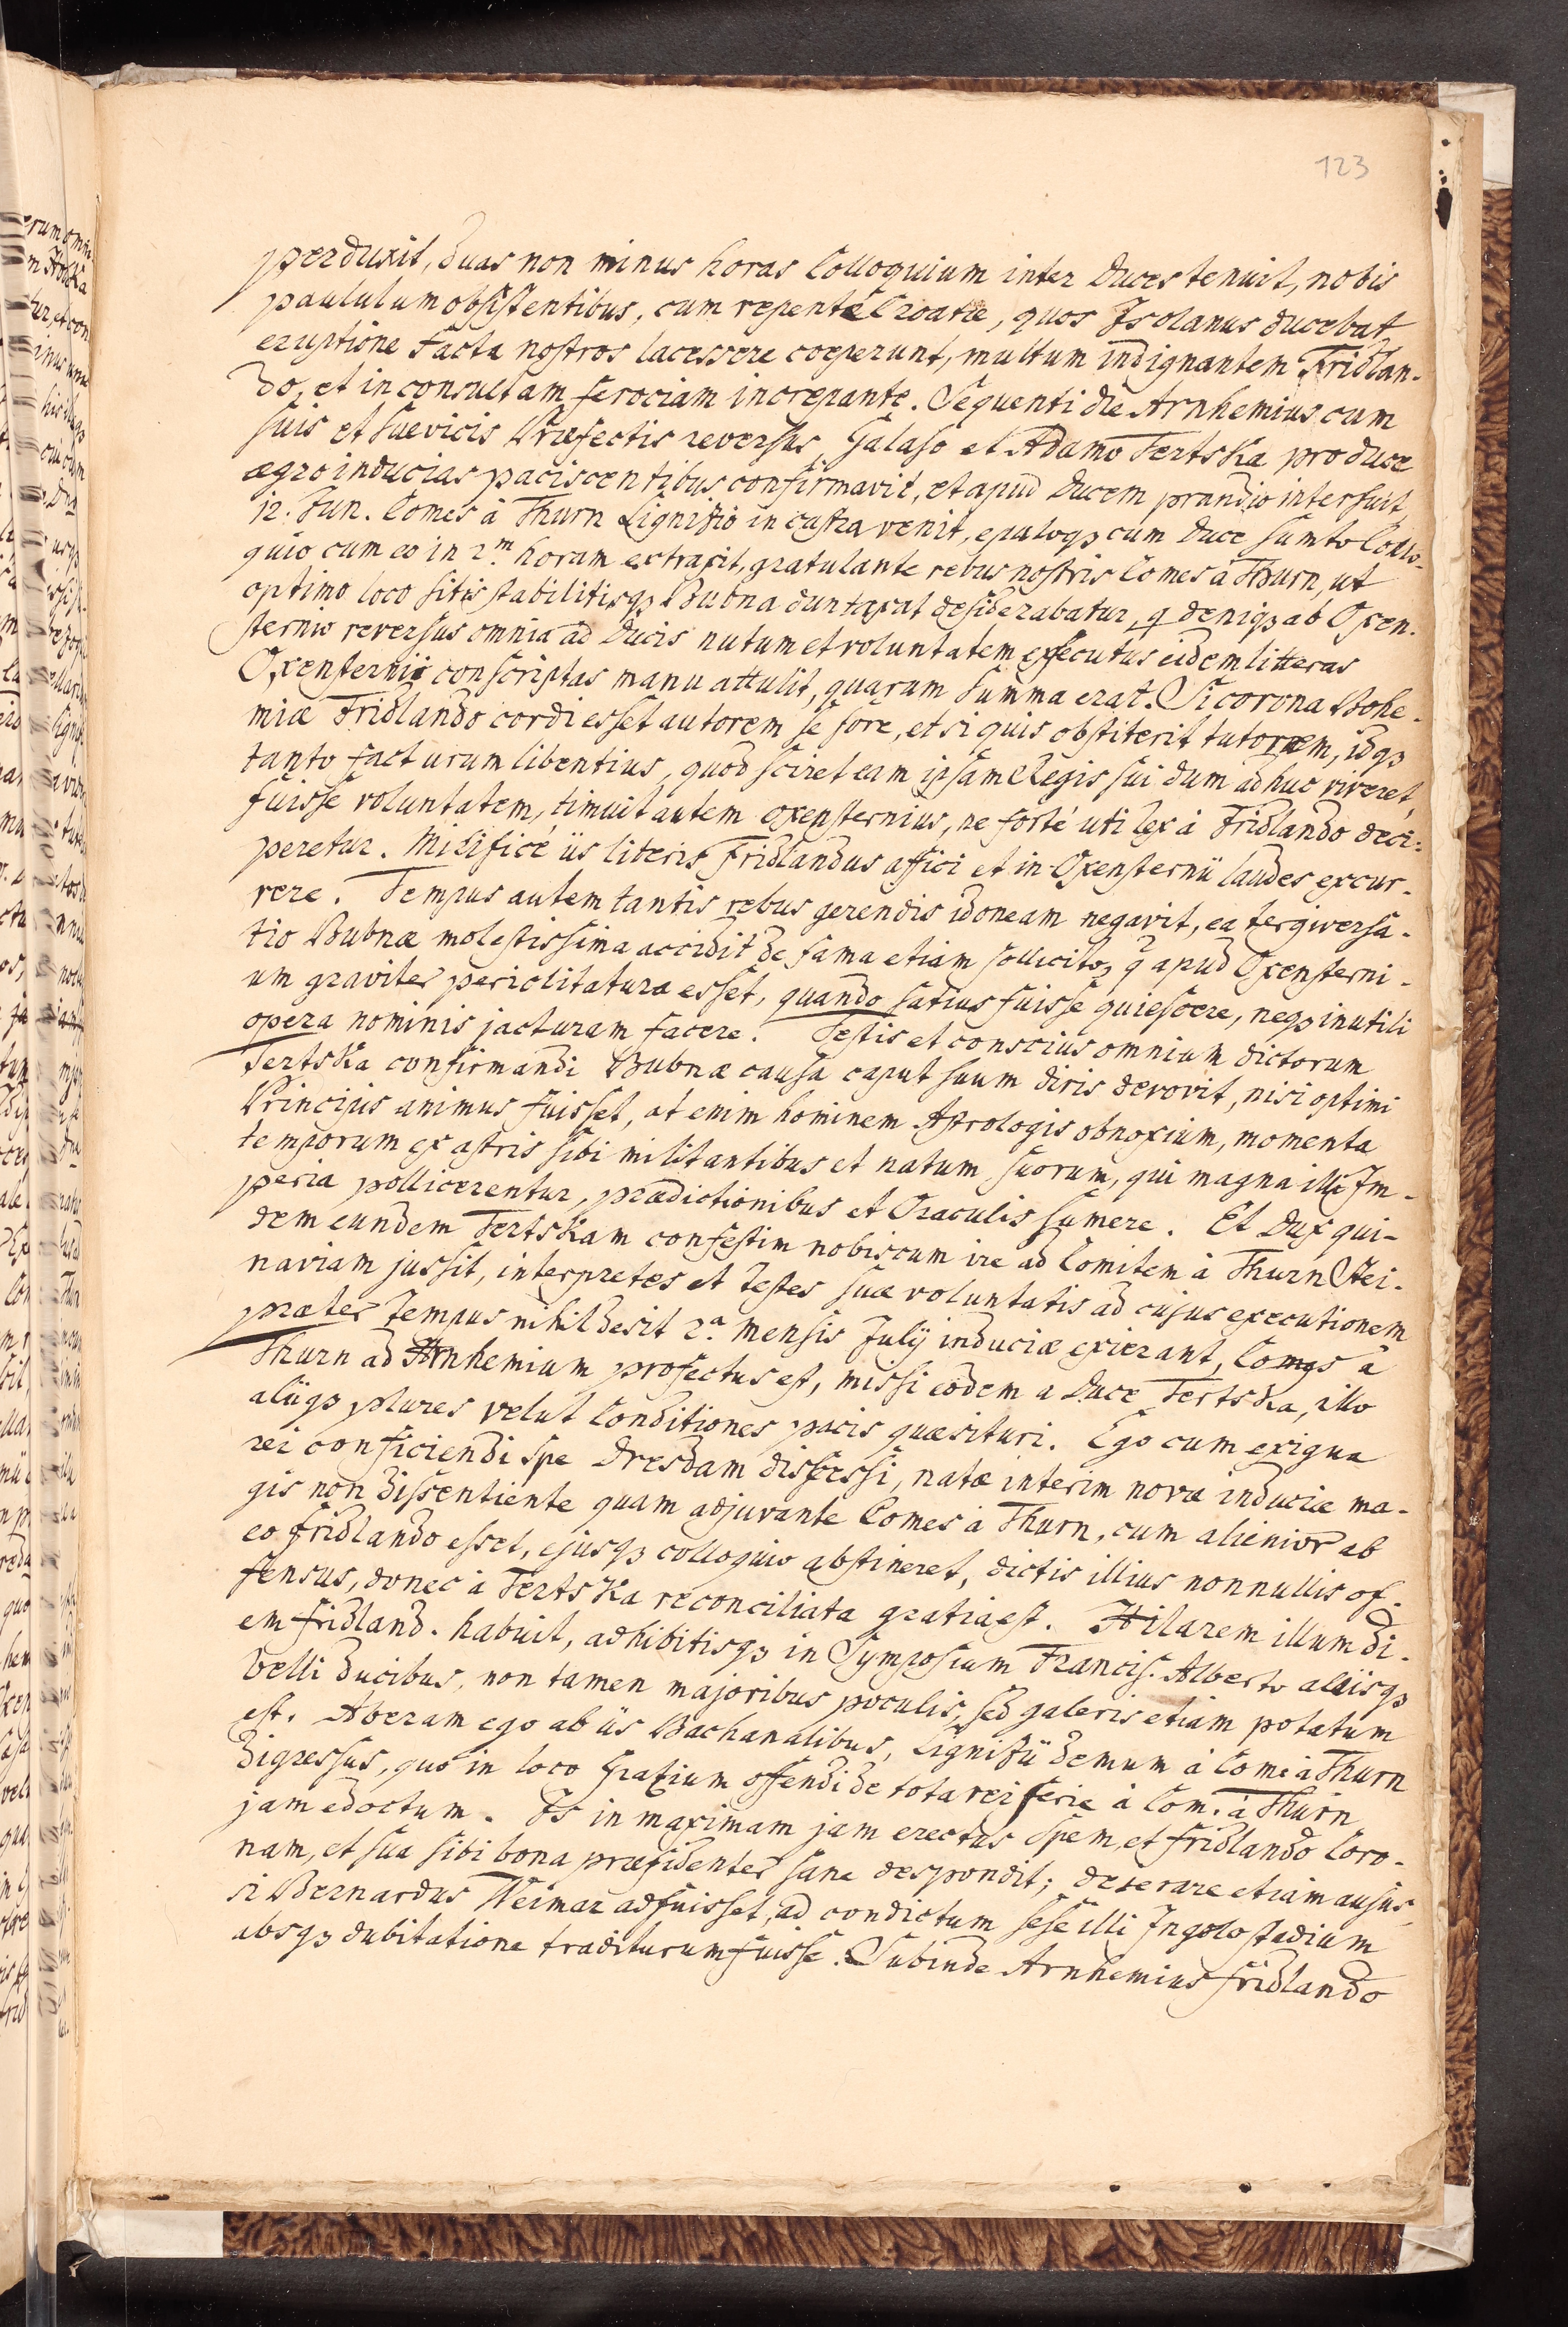 123
perduxit, duas non minus horas Colloquium inter Duces tenuit, nobis
paululum obsistentibus, cum repentè Croatæ, quos Isolanus ducebat
eruptione facta nostros lacessere coeperunt, multum indignantem Fridlan-
do, et inconsultam ferociam increpante. Sequenti die Arnhemius cum
suis et suevicis Præfectis reversus, Galaso et Adamo Tertska pro duce
ægro inducias paciscentibus confirmavit, et apud Ducem prandio interfuit
12. Jun. Comes à Thurn Lignitio in castra venit, epuloqȝ cum Duce sumto Collo-
quio cum eo in 2m. horam extraxit, gratulante rebus nostris Comes à Thurn, ut
optimo loco sitis stabilitisqȝ Bubna duntaxat desiderabatur, q deniqȝ ab Oxen-
sternio reversus omnia ad Ducis nutum et voluntatem exsecutus eidem litteras
Oxensternii conscriptas manu attulit, quarum summa erat. Si corona Bohe-
miæ Fridlando cordi esset autorem se fore, et si quis obstiterit tutorem, idqȝ
tanto facturum libentius, quod sciret eam ipsam Regis sui dum adhuc viveret
fuisse voluntatem, timuit autem oxensternius, ne fortè uti lex à Fridlando deci-
peretur. Mirificè iis literis Fridlandus affici et in Oxensternii laudes excur-
rere. Tempus autem tantis rebus gerendis idoneam negavit, ea tergiversa-
tio Bubnæ molestissima accidit de fama etiam sollicito, q apud Oxensterni-
um graviter periclitatura esset, quando satius fuisse quiescere, neqȝ inutili
opera nominis jacturam facere. Testis et conscius omnium dictorum
Tertska confirmandi Bubnæ causa caput suum diris devovit, nisi optimi
Principis animus fuisset, at enim hominem Astrologis obnoxium, momenta
temporum ex astris sibi militantibus et natum suorum, qui magna illi Im-
peria pollicerentur, prædictionibus et Oraculis sumere. Et Dux qui-
dem eundem Tertskam confestim nobiscum ire ad Comitem à Thurn Stei-
naviam jussit, interpretes et Testes suæ voluntatis ad cujus executionem
præter Tempus nihil desit 2a. Mensis Julij induciæ exierant, Comes à
Thurn ad Arnhemium profectus est, missi eodem a Duce Tertska, illo
aliiqȝ plures velut Conditiones pacis quæsituri. Ego cum exigua
rei conficiendi spe Dresdam discessi, natæ interim novæ induciæ ma-
gis non dissentiente quam adjuvante Comes à Thurn, cum alienior ab
eo fridlando esset, ejusqȝ colloquio abstineret, dictis illius nonnullis of-
fensus, donec à Tertska reconciliata gratia est. Hilarem illum di-
em fridland. habuit, adhibitisqȝ in Symposium Francis. Alberto aliisqȝ
belli ducibus, non tamen majoribus poculis, sed galeris etiam potatum
est. Aberam ego ab iis Bachanalibus, Lignitii demum à Com. à Thurn
digressus, quo in loco Gratium offendi de tota rei serie à Com. à Thurn
jam edoctum. Is in maximam jam erectus spem, et fridlando Coro-
nam, et sua sibi bona præfidenter sane despondit; dejerare etiam ausus,
si Bernardus Weimar adfuisset, ad condictum sese illi Ingolostadium
absqȝ dubitatione traditurum fuisse. Subinde Arnhemius fridlando